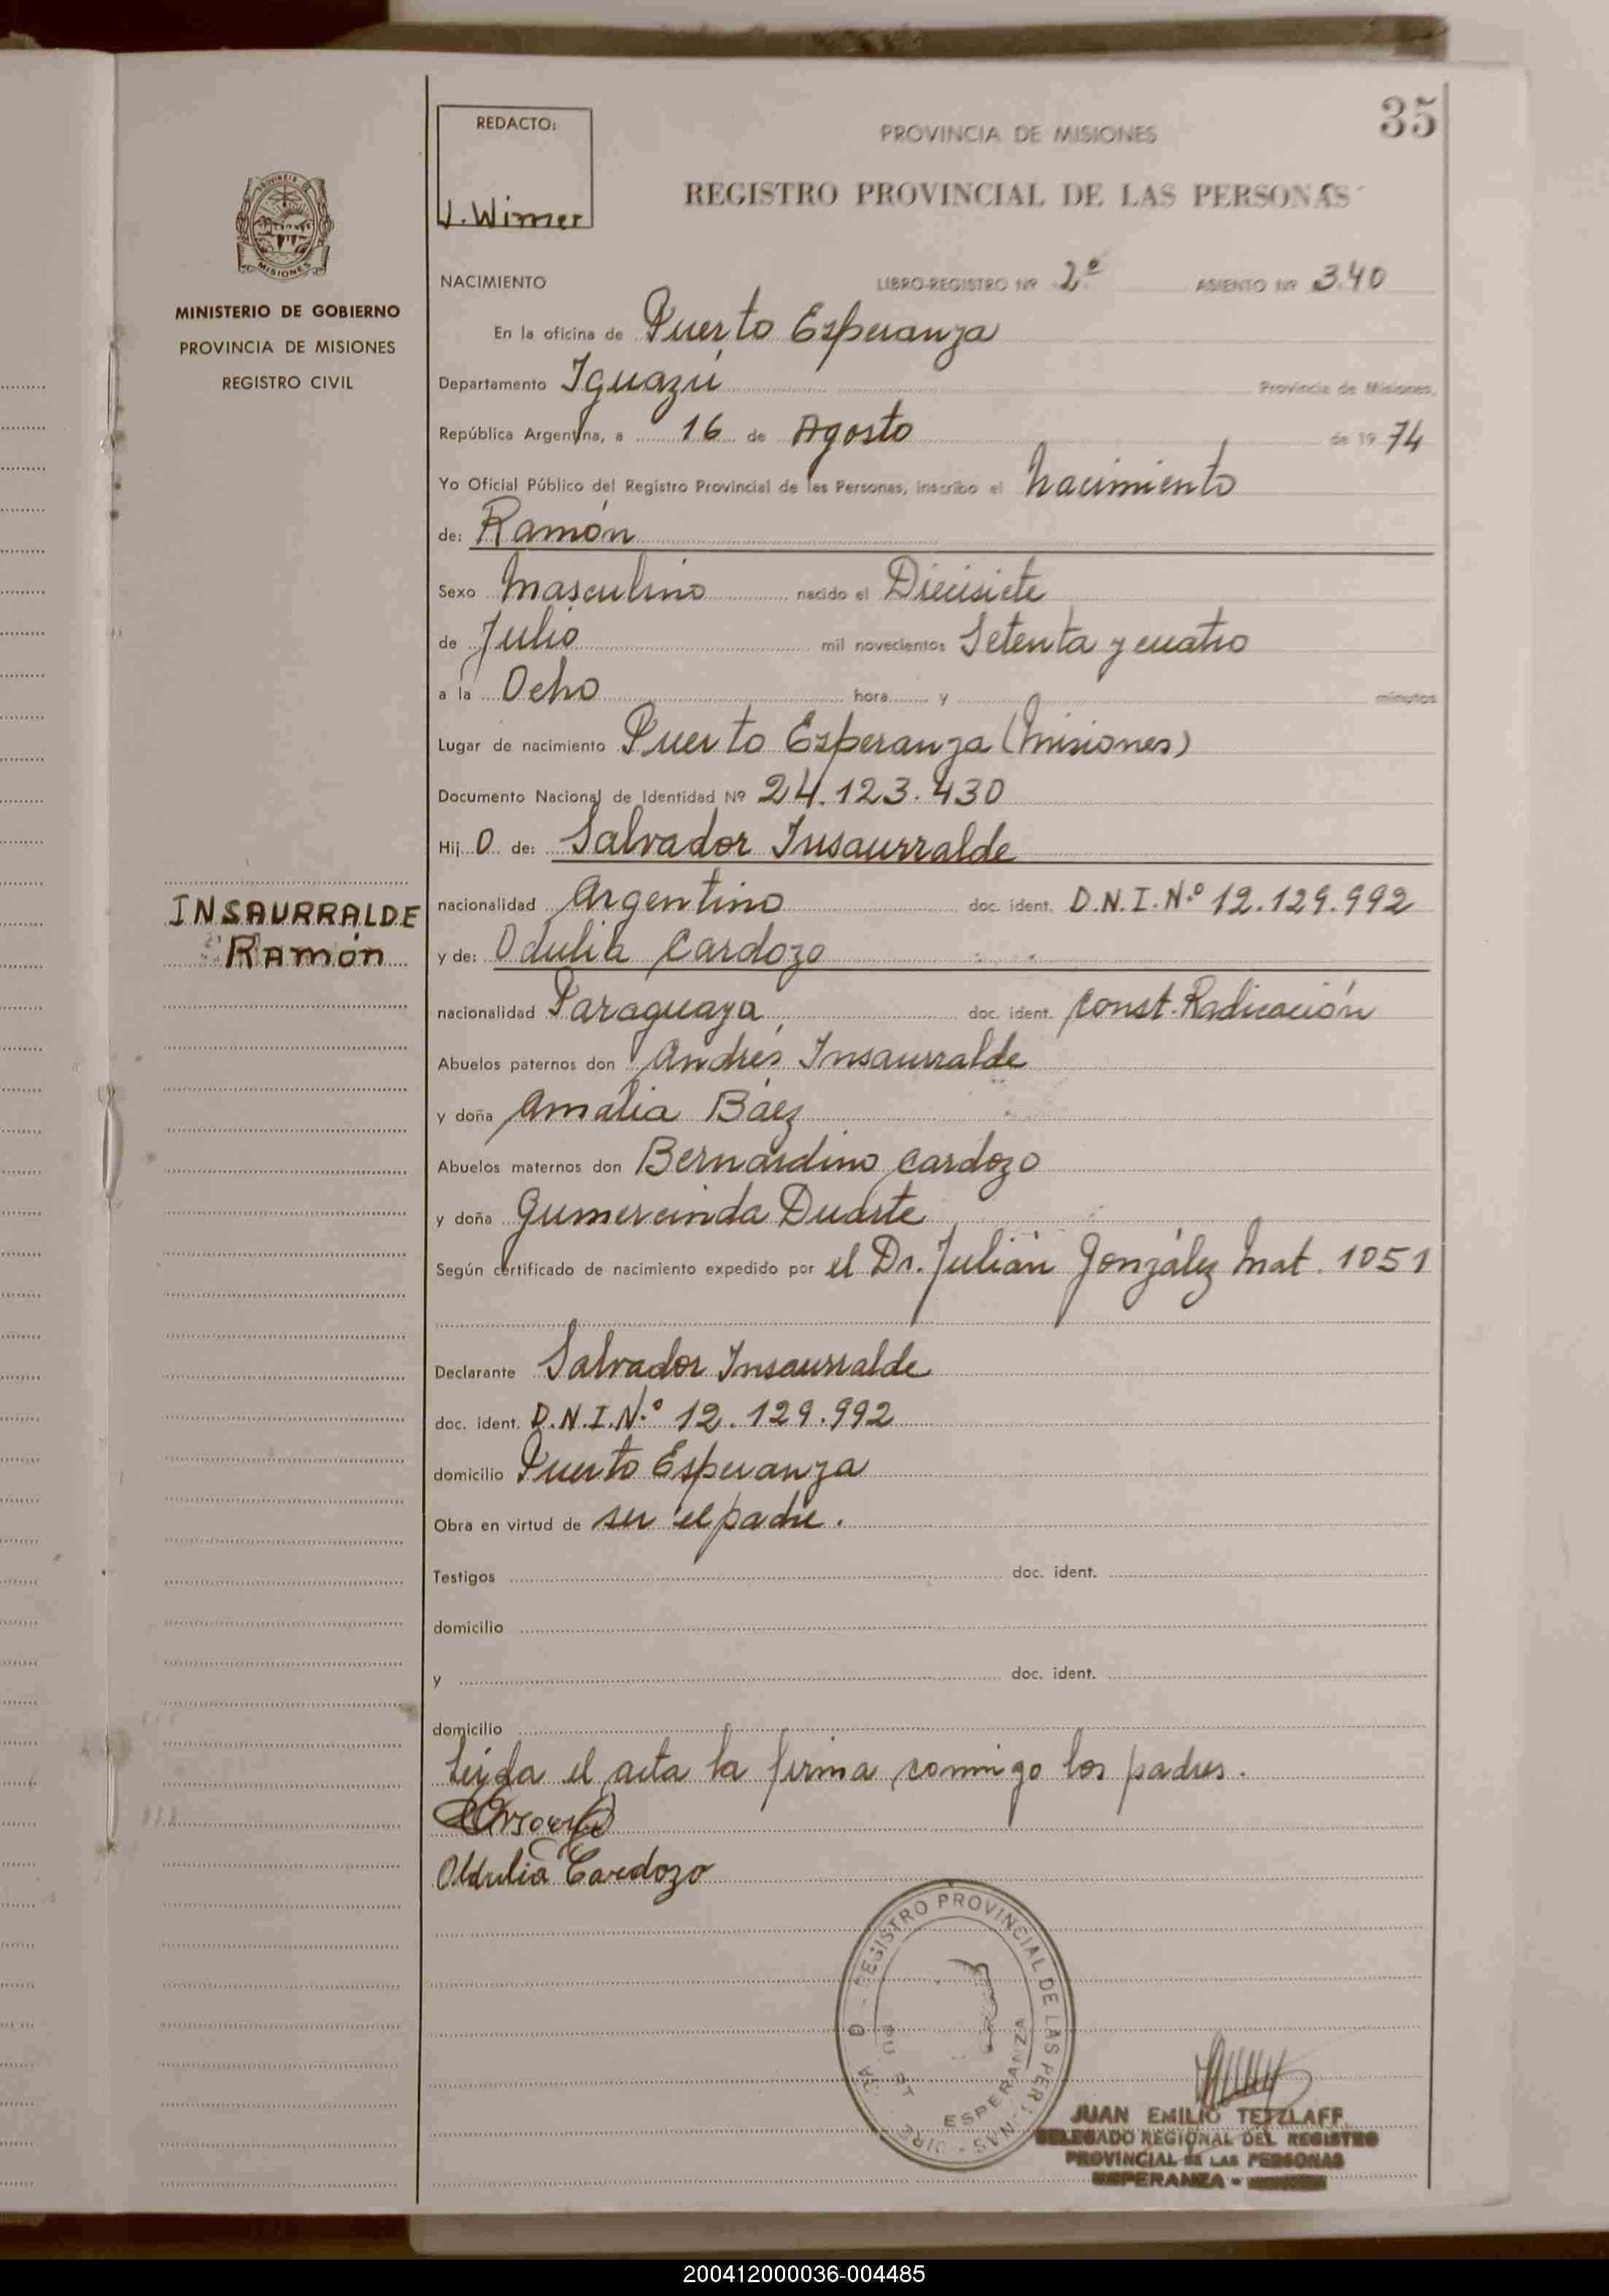 35
REDACTO:
J. Wimer
PROVINCIA DE MISIONES
REGISTRO PROVINCIAL DE LAS PERSONAS
MISIONES
MINISTERIO DE GOBIERNO
PROVINCIA DE MISIONES
REGISTRO CIVIL
NACIMIENTO LIBRO-REGISTRO Nº 2º ASIENTO Nº 340
En la oficina de Puerto Esperanza
Departamento Iguazú Provincia de Misiones,
República Argentina, a 16 de Agosto de 19 74
Yo Oficial Público del Registro Provincial de las Personas, inscribo el Nacimiento
de: Ramón
Sexo Masculino nacido el Diecisiete
de Julio mil novecientos Setenta y cuatro
a la Ocho hora y minutos
Lugar de nacimiento Puerto Esperanza (Misiones)
Documento Nacional de Identidad Nº 24.123.430
Hij o de: Salvador Insaurralde
INSAURRALDE
Ramón
nacionalidad Argentino doc. ident. D.N.I.Nº 12.129.992
y de: Odulia Cardozo
nacionalidad Paraguaya, doc. ident. Const. Radicación
Abuelos paternos don Andrés Insaurralde
y doña Amalia Báez
Abuelos maternos don Bernardino Cardozo
y doña Gumercinda Duarte
Según certificado de nacimiento expedido por el Dr. Julián González Mat. 1051
Declarante Salvador Insaurralde
doc. ident. D.N.I.Nº 12.129.992
domicilio Puerto Esperanza
Obra en virtud de ser el padre.
Testigos doc. ident.
domicilio
y doc. ident.
domicilio
Leída el acta la firma conmigo los padres.
Oldulia Cardozo
REGISTRO PROVINCIAL DE LAS PERSONAS
ESPERANZA
JUAN EMILIO TETZLAFF
DELEGADO REGIONAL DEL REGISTRO
PROVINCIAL DE LAS PERSONAS
ESPERANZA -
200412000036-004485